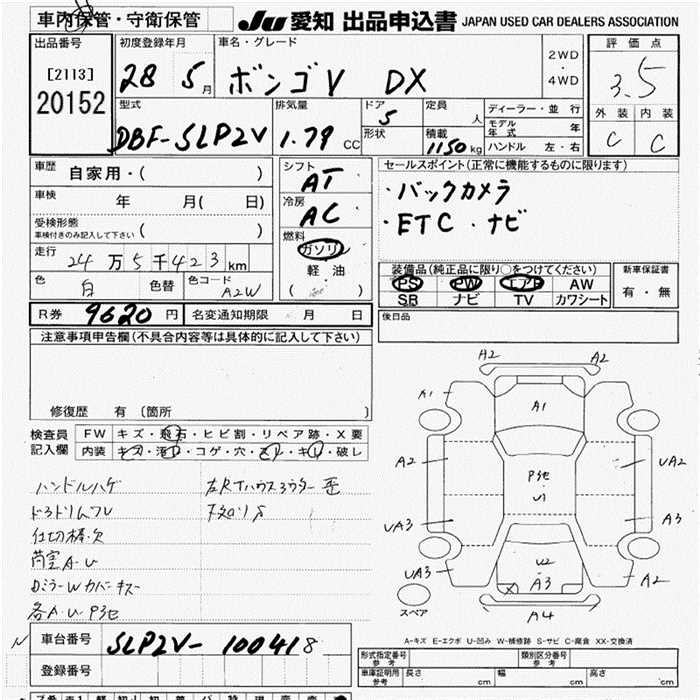 車内保管・守衛保管
JU 愛知 出品申込書 JAPAN USED CAR DEALERS ASSOCIATION
出品番号
[2113]
20152
初度登録年月
28 5月
車名・グレード
ボンゴV DX
2WD
・
4WD
評価点
3.5
外装 内装
C C
型式
DBF-SLP2V
排気量
1.79 CC
ドア
5
形状
定員
人
積載
1150 kg
ディーラー・並行
モデル年式 年
ハンドル 左・右
車歴 自家用・( )
車検 年 月( 日)
受検形態
車検付きのみ記入して下さい ( )
走行 24万5千423km
色 白 色替 色コード A2W
シフト
AT
冷房
AC
燃料
ガソリン
軽油
( )
セールスポイント(正常に機能するものに限ります)
・バックカメラ
・ETC・ナビ
装備品(純正品に限り○をつけてください)
PS PW エアB AW
SR ナビ TV カワシート
新車保証書
有・無
R券 9620円 名変通知期限 月 日
後日品
注意事項申告欄(不具合内容等は具体的に記入して下さい)
修復歴 有 〔箇所 〕
検査員
記入欄
FW キズ・飛石・ヒビ割・リペア跡・X要
内装 キズ・汚レ・コゲ・穴・スレ・キレ・破レ
ハンドルハゲ
仕切棒欠
荷室A・U
DミラーWカバーキズ
各A・U P3セ
A2 A2
A1 A1
A2 UA2
P3セ
U1
UA3 A3
U2
A3
UA3 A2
X
A4
スペア
A-キズ E-エクボ U-凹み W-補修跡 S-サビ C-腐食 XX-交換済
車台番号 SLP2V-100418
登録番号
形式指定番号 参考
類別区分番号 参考
車庫証明用 参考 長さ cm 幅 cm 高さ cm